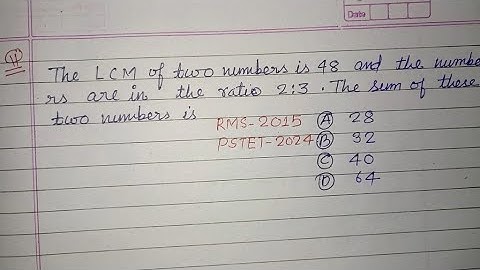 Date
(11) The LCM of two numbers is 48 and the numbe
rs are in the ratio 2:3. The sum of these
two numbers is RMS-2015 (A) 28
PSTET-2024 (B) 32
(C) 40
(D) 64